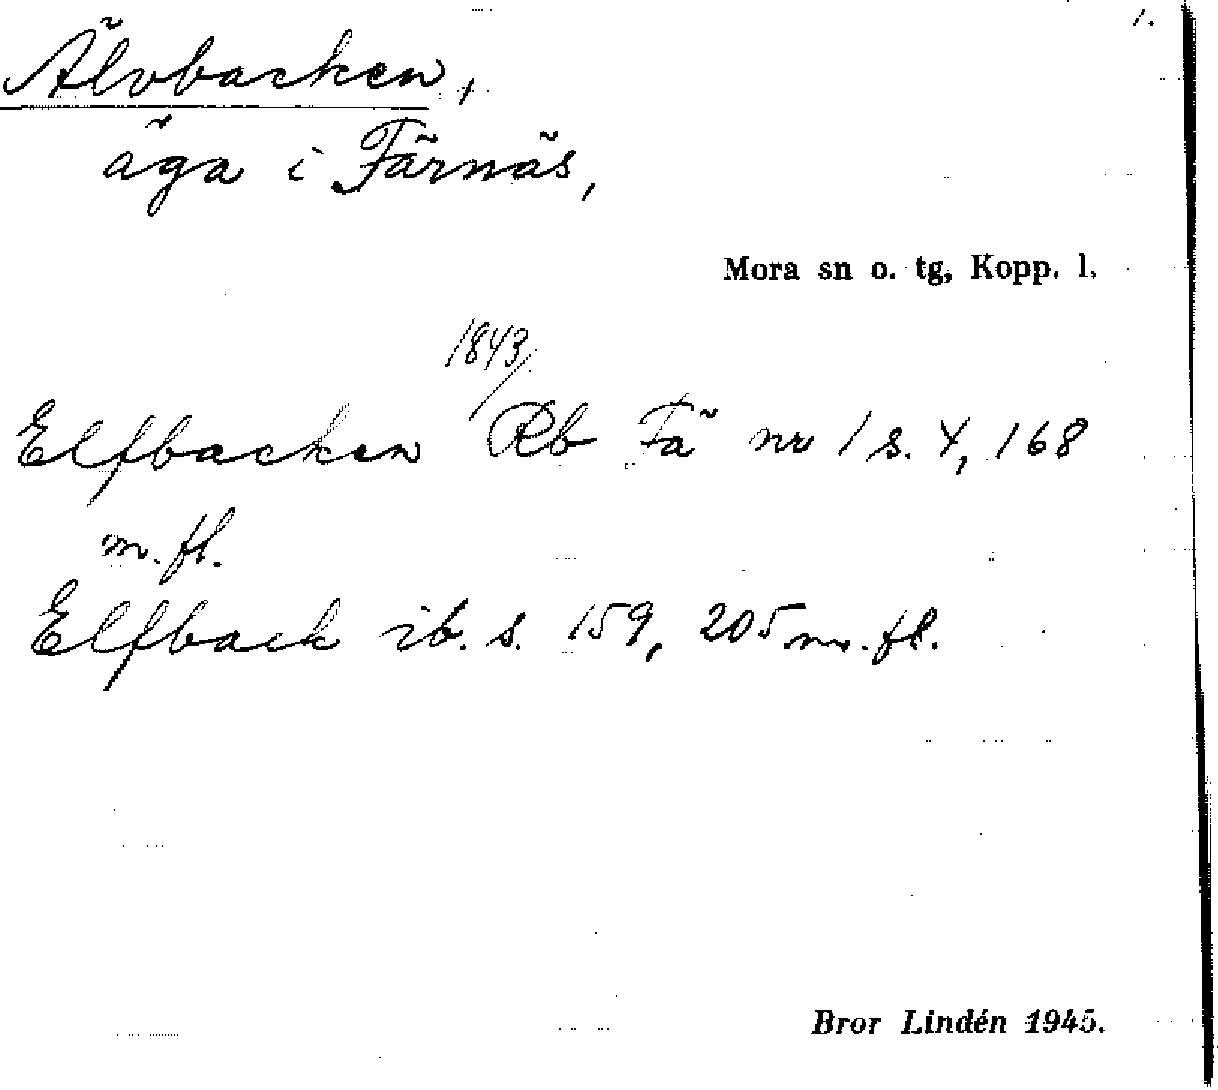 1.
Älvbacken,
äga i Färnäs,
Mora sn o. tg, Kopp. l.
1843/
Elfbacken Rb Fä nr 1 s. 4, 168
m. fl.
Elfback ib. s. 159, 205 m. fl.
Bror Lindén 1945.